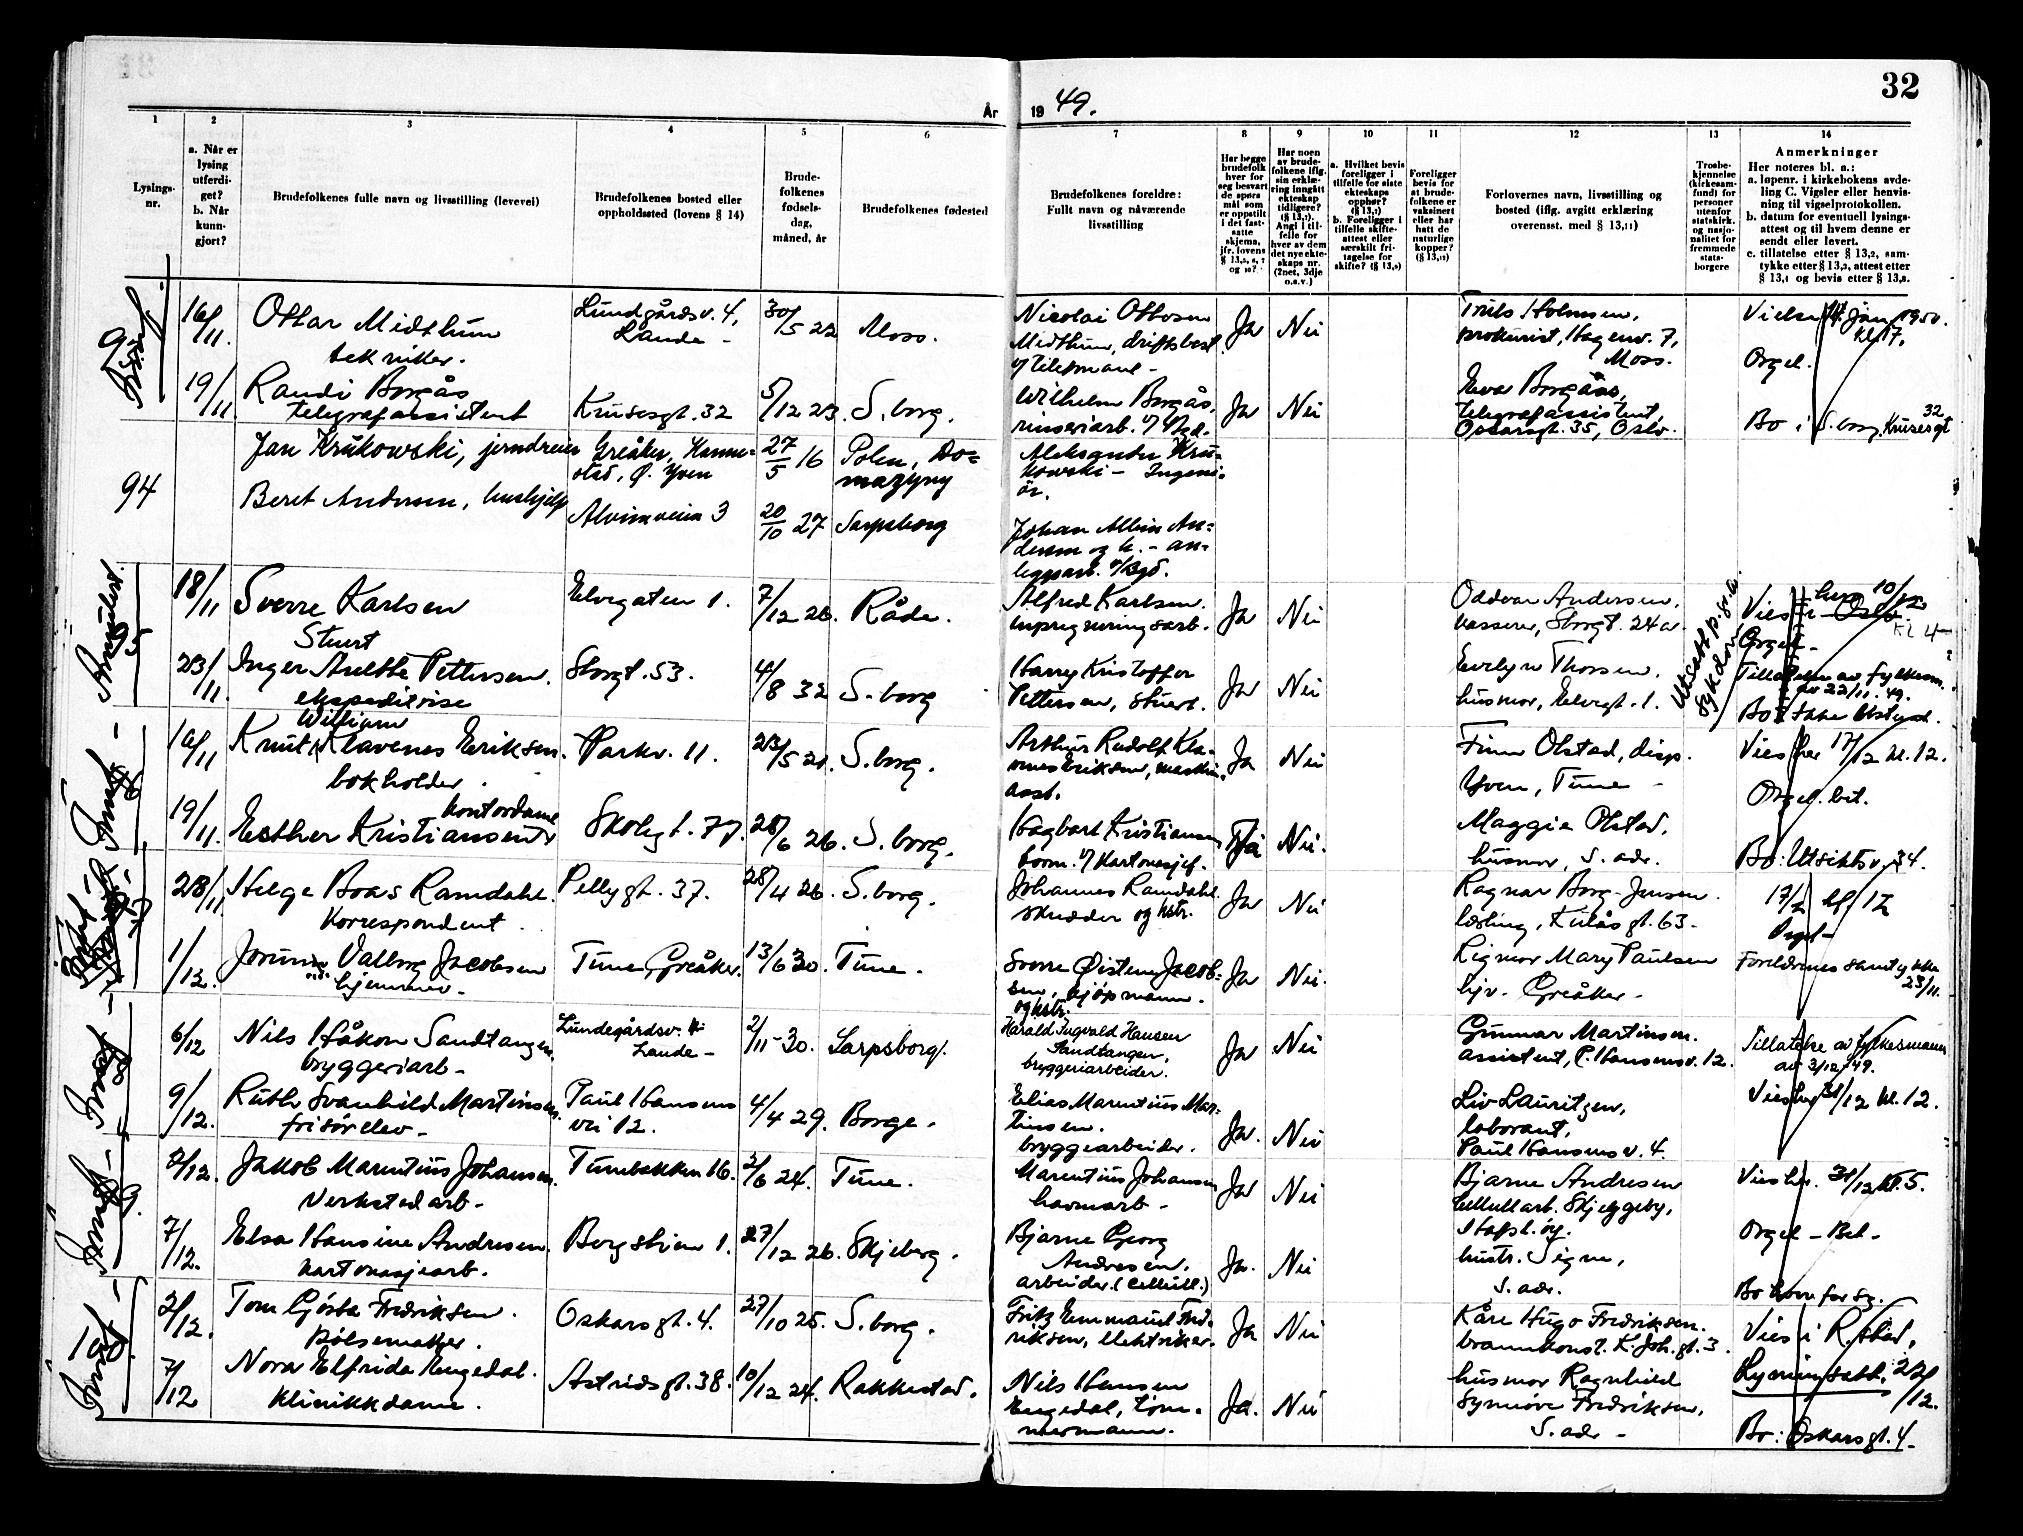 32
År 1949.
1 2 3 4 5 6 7 8 9 10 11 12 13 14
Lysings-
nr.
a. Når er
lysing
utferdi-
get?
b. Når
kunn-
gjort?
Brudefolkenes fulle navn og livsstilling (levevei)
Brudefolkenes bosted eller
oppholdssted (lovens § 14)
Brude-
folkenes
fødsels-
dag,
måned, år
Brudefolkenes fødested
Brudefolkenes foreldre:
Fullt navn og nåværende
livsstilling
Har begge
brudefolk
hver for
seg besvart
de spørs-
mål som
er oppstilt
i det fast-
satte
skjema,
jfr. lovens
Har noen
av brude-
folkene iflg.
sin erklæ-
ring inngått
ekteskap
tidligere?
(§ 13,1).
Angi i til-
felle for
hver av dem
det nye ekte-
skaps nr.
(2net, 3dje
o.s.v.)
a. Hvilket bevis
foreligger i
tilfelle for siste
ekteskaps
opphør?
b. Foreligger i
tilfelle skifte-
attest eller
særskilt fri-
tagelse for
skifte?
Foreligger
bevis for
at brude-
folkene er
vaksinert
eller har
hatt de
naturlige
kopper?
Forlovernes navn, livsstilling og
bosted (iflg. avgitt erklæring
overensst. med § 13,11)
Trosbe-
kjennelse
(kirkesam-
fund) for
personer
utenfor
statskirk.
og nasjo-
nalitet for
fremmede
stats-
borgere
Anmerkninger
Her noteres bl. a.:
a. løpenr. i kirkebokens avde-
ling C. Vigsler eller henvis-
ning til vigselprotokollen.
b. datum for eventuell lysings-
attest og til hvem denne er
sendt eller levert.
c. tillatelse etter § 13,2, sam-
tykke etter § 13,3, attest etter
§ 13,4 og bevis etter § 13,8.
16/11 Ottar Midthun Lundgårdsv. 4, 30/5 22 Moss. Nicolai Ottosen Ja Nei Truls Holmsen, Vielse 14. jan. 1950.
tekniker. Lande - Midthun, driftsbest. prokurist, Hagenv. 7, kl. 17.
v/ telefonanl - Moss. Orgel.
19/11 Randi Borgås Krusesgt. 32 5/12 23. S.borg. Wilhelm Borgås, Ja Nei Eva Borgåss,
telegrafassistent telegrafassistent, Bo i S.borg. Krusesgt 32
Oscarsgt. 35, Oslo.
94 Jan Krukowski, jerndreier Greåker, Hanne- 27/5 16 Polen, Do- Aleksander Kru-
stad, Ø. Yven mazyny kowski - Ingeni-
ør.
Beret Andersen, hushjelp Alvimveien 3 20/10 27 Sarpsborg Johan Albin An-
dersen og h. - an-
leggsarb.
18/11 Sverre Karlsen Elvegaten 1. 7/12 26. Råde. Alfred Karlsen. Ja Nei Oddvar Andersen, Vies i Oslo her 10/12
Stuert impregneringsarb. kasserer, Storgt. 24a kl 4
Orgel -
23/11. Inger Anette Pettersen. Storgt. 53. 4/8 32 S.borg Harry Kristoffer Ja Nei Evelyn Thorsen, Tillatelse av fylkesm.
ekspeditrise Pettersen, Stuert. husmor, Elvegt. 1. av 22/11.49.
Utsatt p.gr.a.
sykdom
16/11 Knut William Klavenes Eriksen. Parkv. 11. 23/5 20. S.borg. Arthur Rudolf Kla- Ja Nei Finn Olstad, disp. Vies her 17/12 kl. 12.
bokholder. venes Eriksen, maskin- Yven, Tune -
asst. Orgel. bet.
19/11. Esther Kristiansen kontordame Skolegt. 77. 28/6 26. S.borg. Hagbart Kristiansen Ja Nei. Maggie Olstad,
form. v/ Kartonasjef. husmor, S. adr. Bo: Utsiktsv. 34.
23/11 Helge Boas Ramdahl. Pellygt. 37. 28/4 26. S.borg. Johannes Ramdahl Ja Nei Ragnar Borg-Jensen. 17/12 kl 12
Korrespondent. skredder og hstr. lærling, Kulåsgt. 63 - Orgel -
1/12. Jorunn Valborg Jacobsen Tune, Greåker. 13/6 30. Tune. Sverre Øistein Jacob- Ja Nei. Rigmor Mary Paulsen Foreldrenes samtykke
hjemmev. - sen, kjøpmann. hjv. Greåker - 23/11.
og hstr.
6/12 Nils Håkon Sandtangen. Lundegårdsv. 2/11-30. Sarpsborg. Harald Ingvald Hansen Ja Nei Gunnar Martinsen. Tillatelse av fylkesmann
bryggeriarb - Lande - Sandtangen, assistent, P. Hansensv. 12. av 3/12.49.
bryggeriarbeider.
9/12. Ruth Svanhild Martinsen. Paul Hansens 4/4 29. Borge. Elias Marentius Mar- Ja. Nei Liv Lauritzen, Vies her 31/12 kl. 12.
frisørelev - vei 12. tinsen. laborant,
bryggearbeider. Paul Hansensv. 4.
2/12. Jakob Marentius Johansen. Tunebakken 16. 2/6 24. Tune. Marentius Johansen Ja Nei Bjarne Andresen Vies her. 31/12 kl. 5.
Verkstedarb - havnarb - cellullarb. Skjeggeby,
Hafsl. øy. Orgel - Bet -
7/12. Elsa Hansine Andresen. Bergstien 1. 27/12 26. Skjeberg. Bjarne Georg Ja. Nei hustr. Signe,
kartonasjearb. Andresen, S. adr.
arbeider (cellull.)
2/12. Tom Gösta Fredriksen. Oskarsgt. 4. 27/10 25. S.borg. Fritz Emmanuel Fred- Ja Nei Kåre Hugo Fredriksen. Vies i R.stad,
Pølsemaker. riksen, elektriker. brannkonst. K. Joh. gt. 3. Lysningsatt. 22/12.
7/12 Nora Elfrida Engedal. Astridsgt. 38. 10/12 24. Rakkestad. Nils Hansen Ja. Nei husmor Ragnhild
Klinikkdame. Engedal, tøm- Synnøve Fredriksen,
mermann. S. adr - Bo: Oskarsgt. 4 -